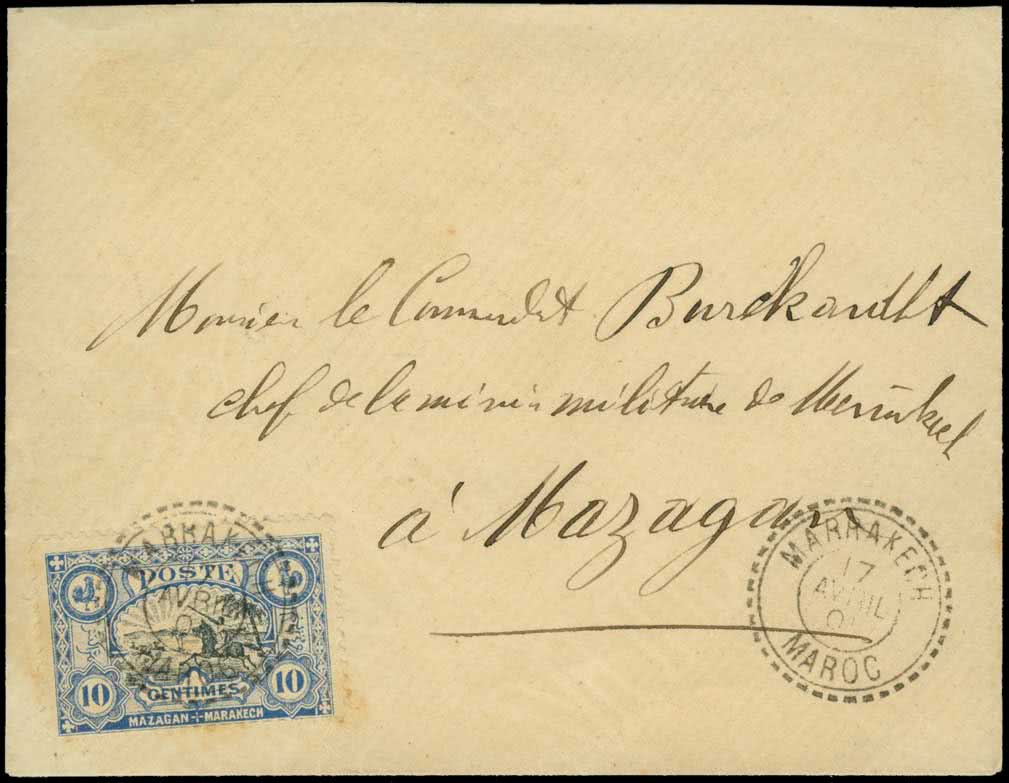 Monsieur le Commandant Burckardt
chef de la mission militaire de
à Mazagan
MARRAKECH
17
AVRIL
MAROC
MARRAKECH
AVRIL
POSTE
10 CENTIMES 10
MAZAGAN MARAKECH